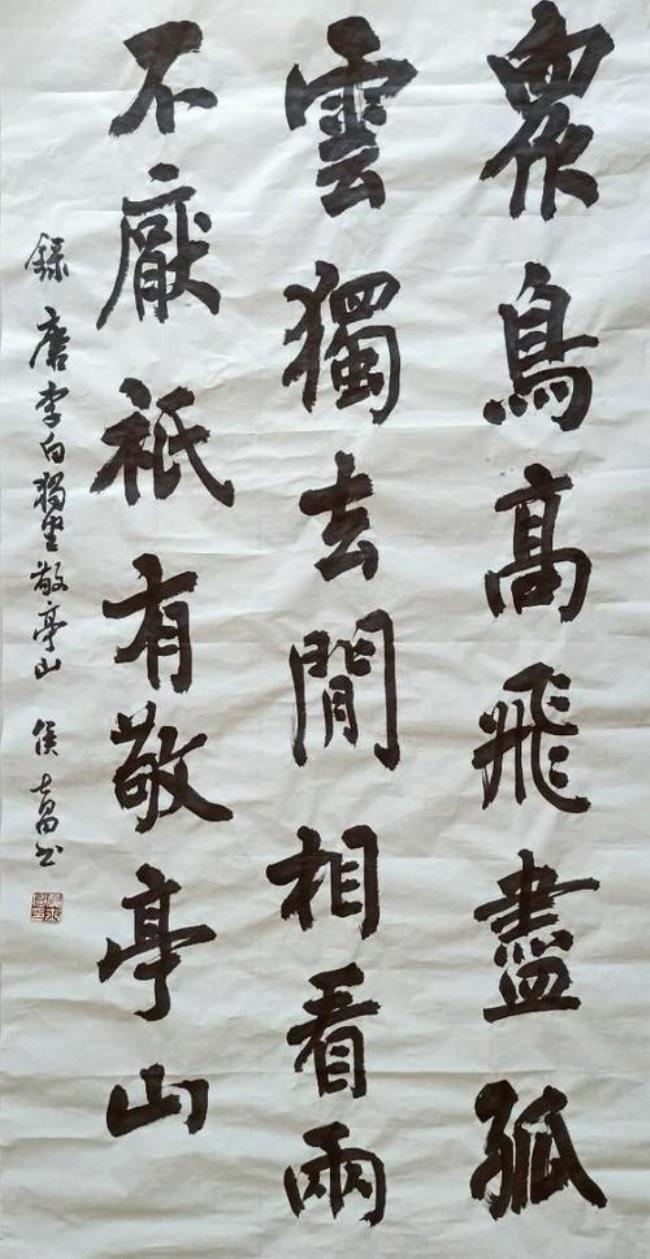 眾鳥高飛盡孤
雲獨去閒相看兩
不厭祗有敬亭山
錄唐李白獨坐敬亭山 侯書